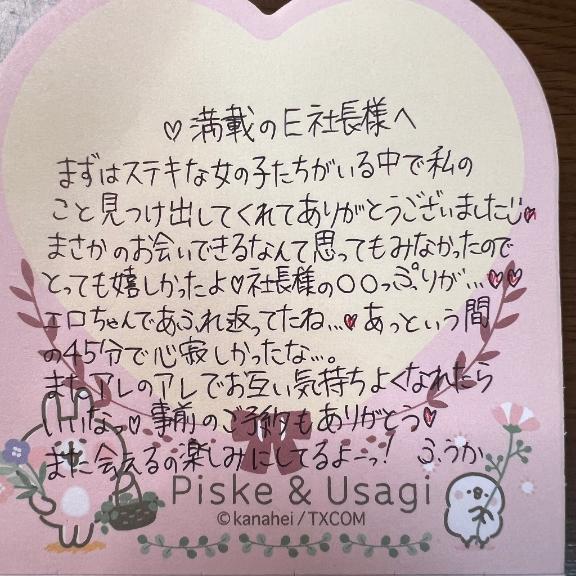 ♡満載のE社長様へ
まずはステキな女の子たちがいる中で私の
こと見つけ出してくれてありがとうございました♡
まさかのお会いできるなんて思ってもみなかったので
とっても嬉しかったよ♡社長様の〇〇っぷりが…♡♡
エロちゃんであふれ返ってたね…♡あっという間
の45分で心寂しかったな…。
またアレのアレでお互い気持ちよくなれたら
いいなっ♡事前のご予約もありがとっ♡
また会えるの楽しみにしてるよーっ! ふうか
Piske & Usagi
©kanahei / TXCOM